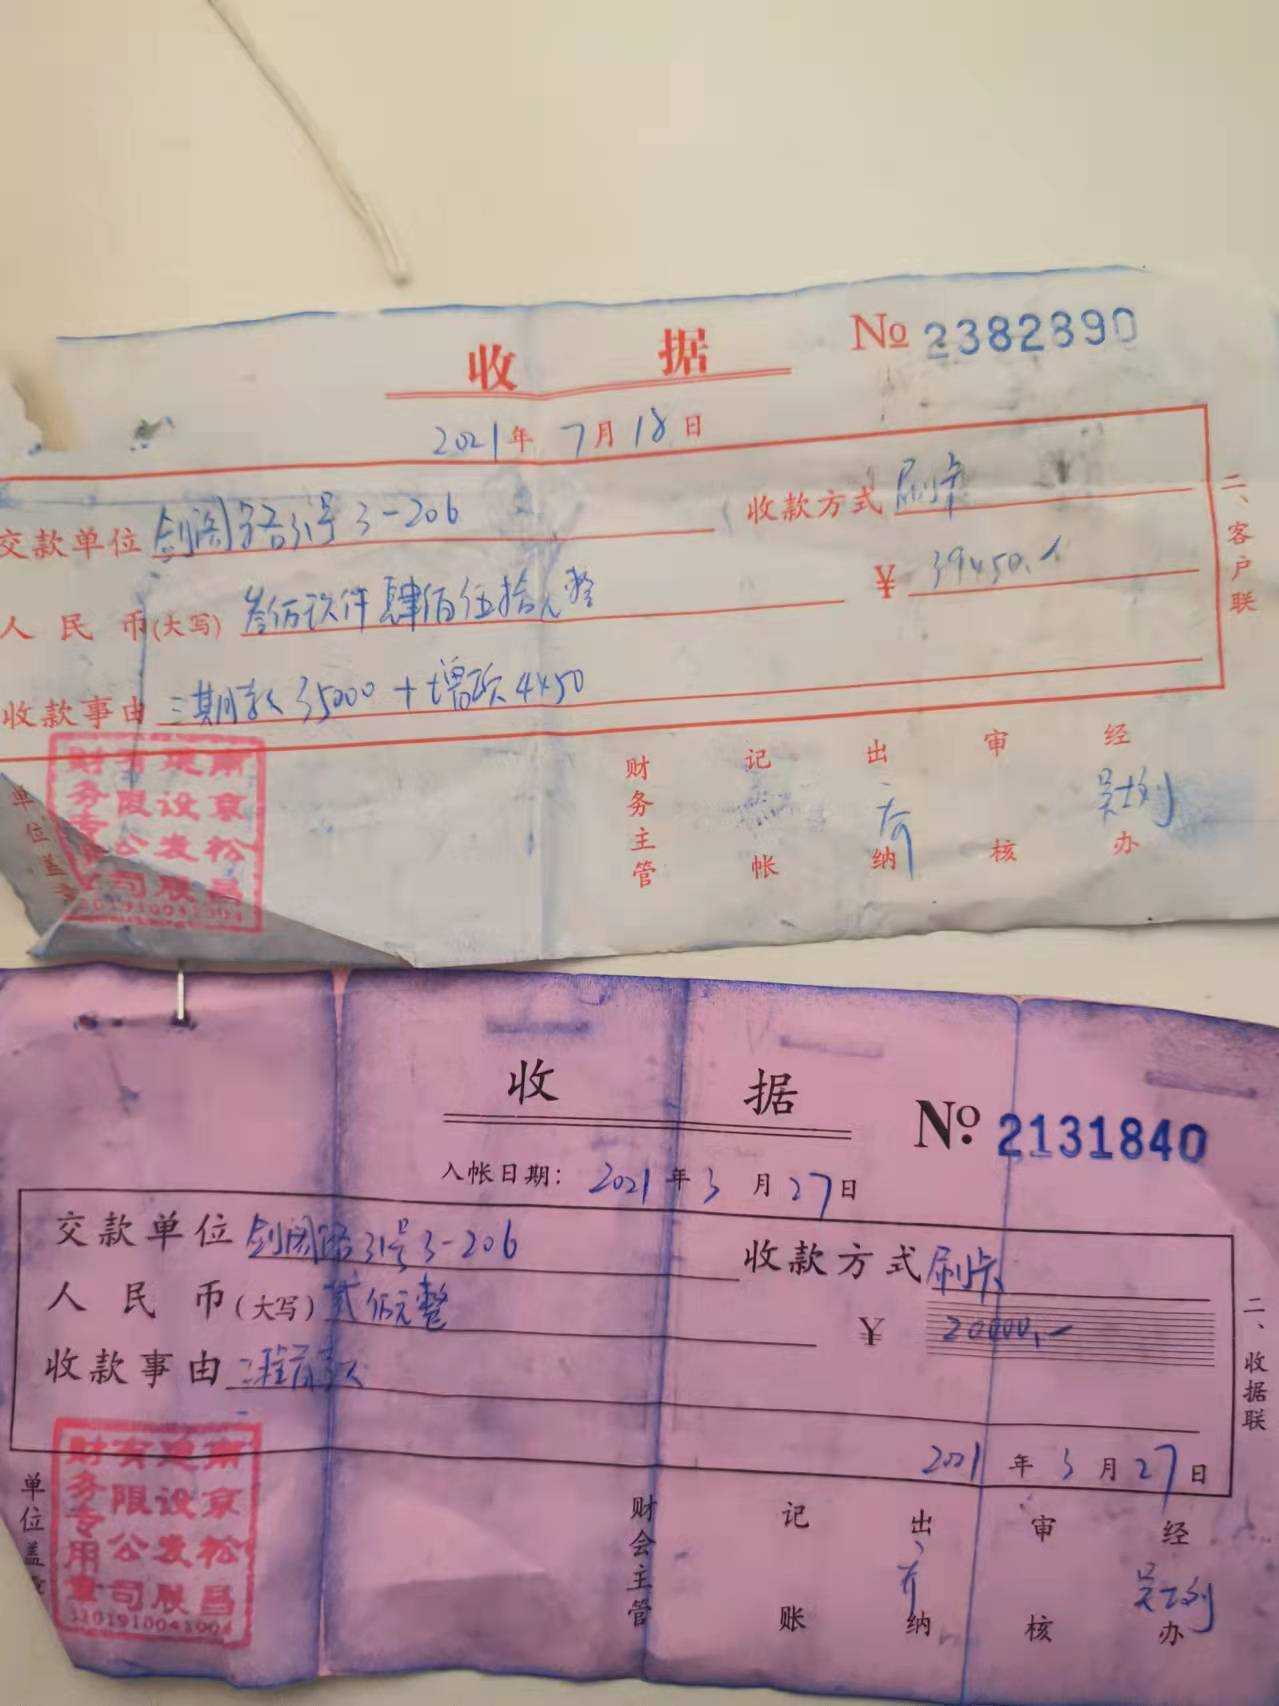 收 据 No 2382390
2021年 7月 18日
交款单位 剑阁路31号3-206 收款方式 刷卡
人民币(大写) 叁万玖仟肆佰伍拾元整 ¥ 39450.
收款事由 三期款35000+增项4450
二、客户联
财务主管 记帐 出纳 审核 经办
单位盖
南京松昌建设发展有限公司财务专
收 据 No. 2131840
入帐日期: 2021年 3月 27日
交款单位 剑阁路31号3-206 收款方式 刷卡
人民币(大写) 贰万元整 ¥ 20000.
收款事由 二
二、收据联
2021年 3月 27日
财会主管 记账 出纳 审核 经办
单位盖
南京松昌建设发展有限公司财务专用章